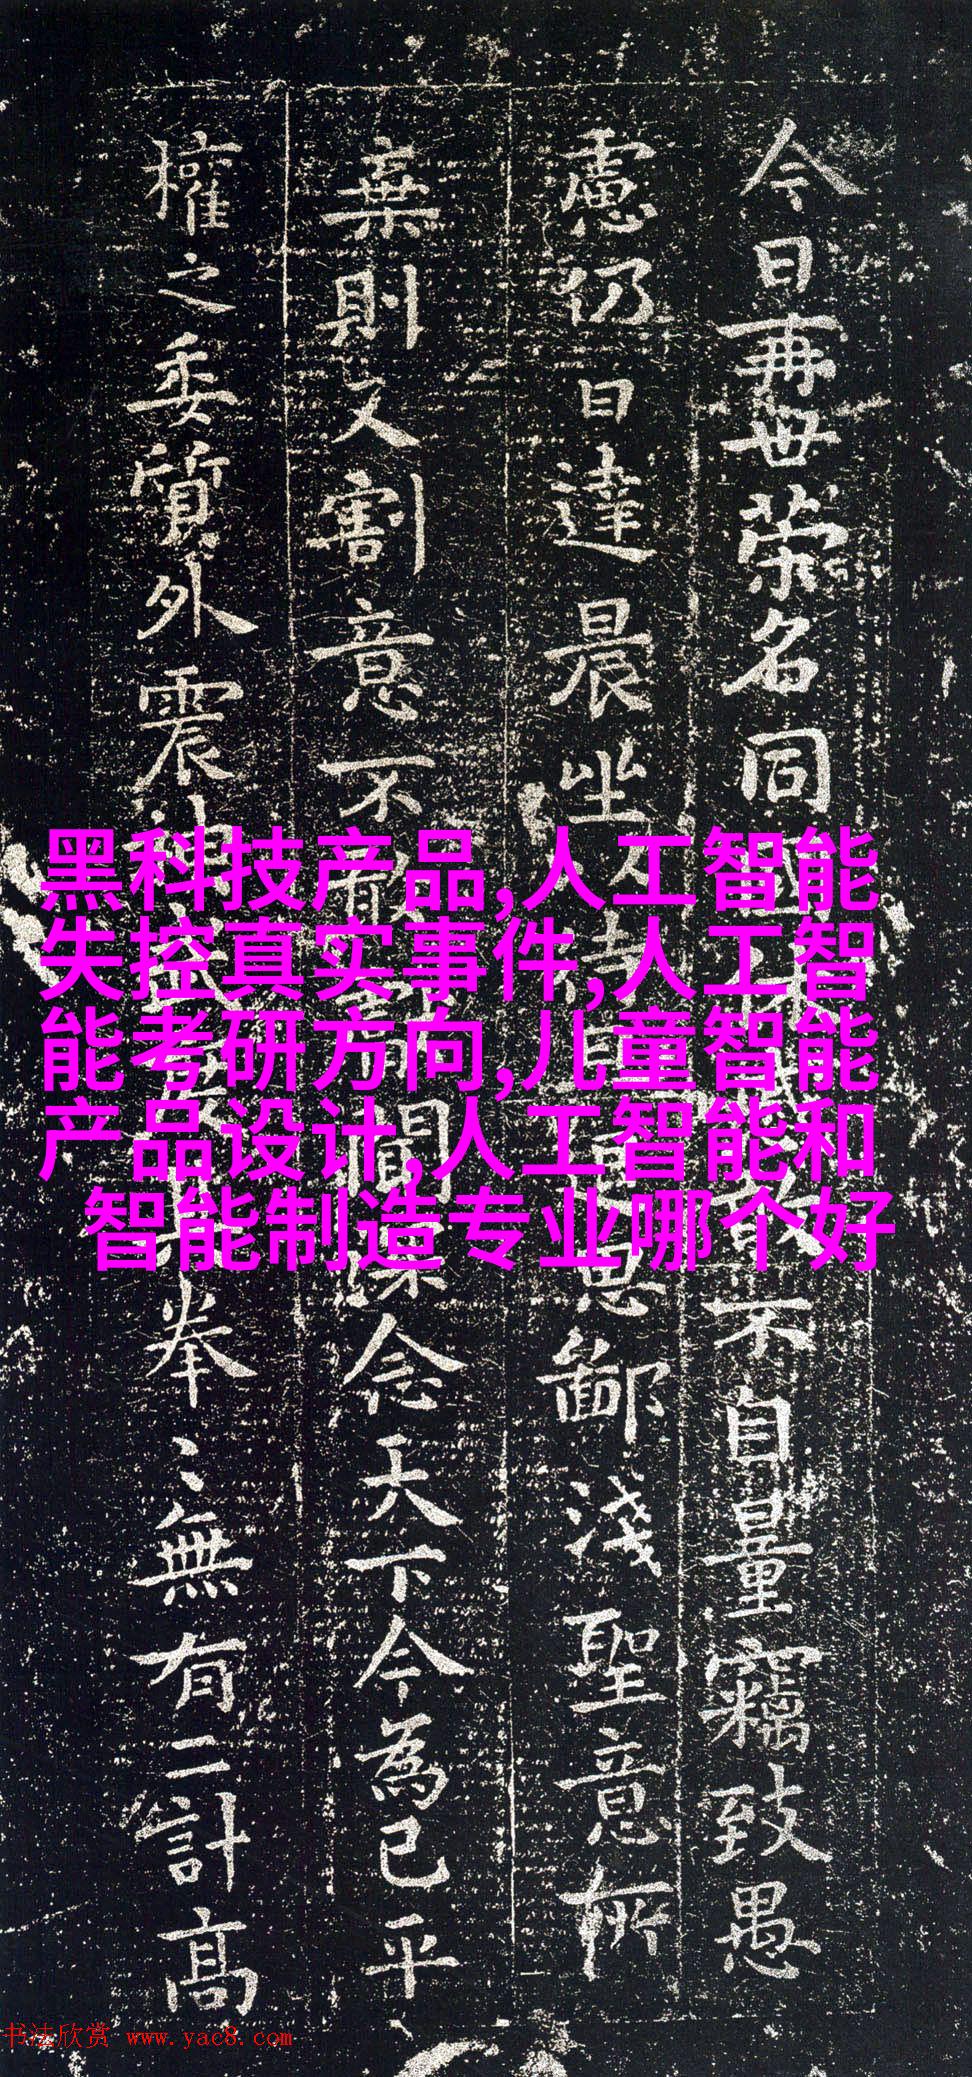 今日再世荣名同不自量竊致愚
慮仍日達晨坐思鄙淺聖意所
棄則又割意不聞深念天下今為已平
權之委質外震神拳〻無有二計高
黑科技产品,人工智能
失控真实事件,人工智
能考研方向,儿童智能
产品设计,人工智能和
智能制造专业哪个好
书法欣赏 www.yac8.com